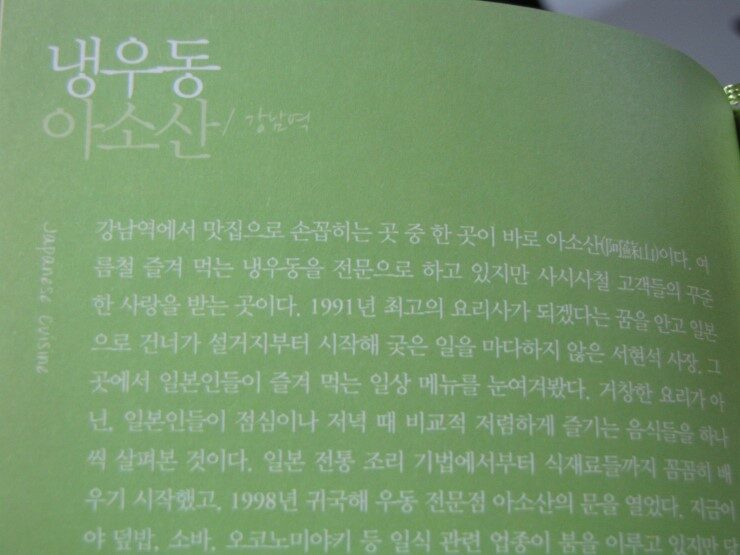 냉우동
아소산 / 강남역
Japanese Cuisine
강남역에서 맛집으로 손꼽히는 곳 중 한 곳이 바로 아소산(阿蘇山)이다. 여
름철 즐겨 먹는 냉우동을 전문으로 하고 있지만 사시사철 고객들의 꾸준
한 사랑을 받는 곳이다. 1991년 최고의 요리사가 되겠다는 꿈을 안고 일본
으로 건너가 설거지부터 시작해 궂은 일을 마다하지 않은 서현석 사장. 그
곳에서 일본인들이 즐겨 먹는 일상 메뉴를 눈여겨봤다. 거창한 요리가 아
닌, 일본인들이 점심이나 저녁 때 비교적 저렴하게 즐기는 음식들을 하나
씩 살펴본 것이다. 일본 전통 조리 기법에서부터 식재료들까지 꼼꼼히 배
우기 시작했고, 1998년 귀국해 우동 전문점 아소산의 문을 열었다. 지금이
야 덮밥, 소바, 오코노미야키 등 일식 관련 업종이 붐을 이루고 있지만 당